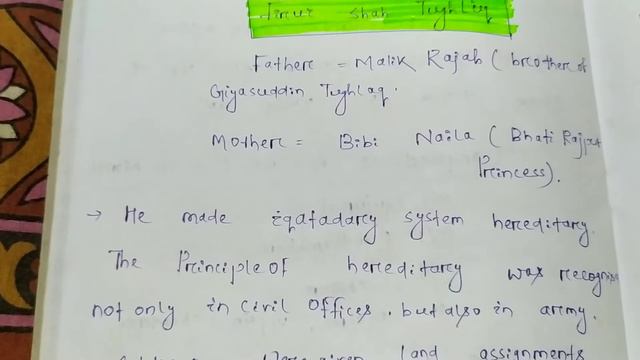 Firuz Shah Tughlaq
Fathere = Malik Rajab ( brcother of
Giyasuddin Tughlaq.
Mothere = Bibi Naila ( Bhati Rajput
Prcincess).
→ He made iqatadarcy system hereditarcy.
The Principle of hereditarcy was recognis
not only in civil offices. but also in arcmy.
land assignments